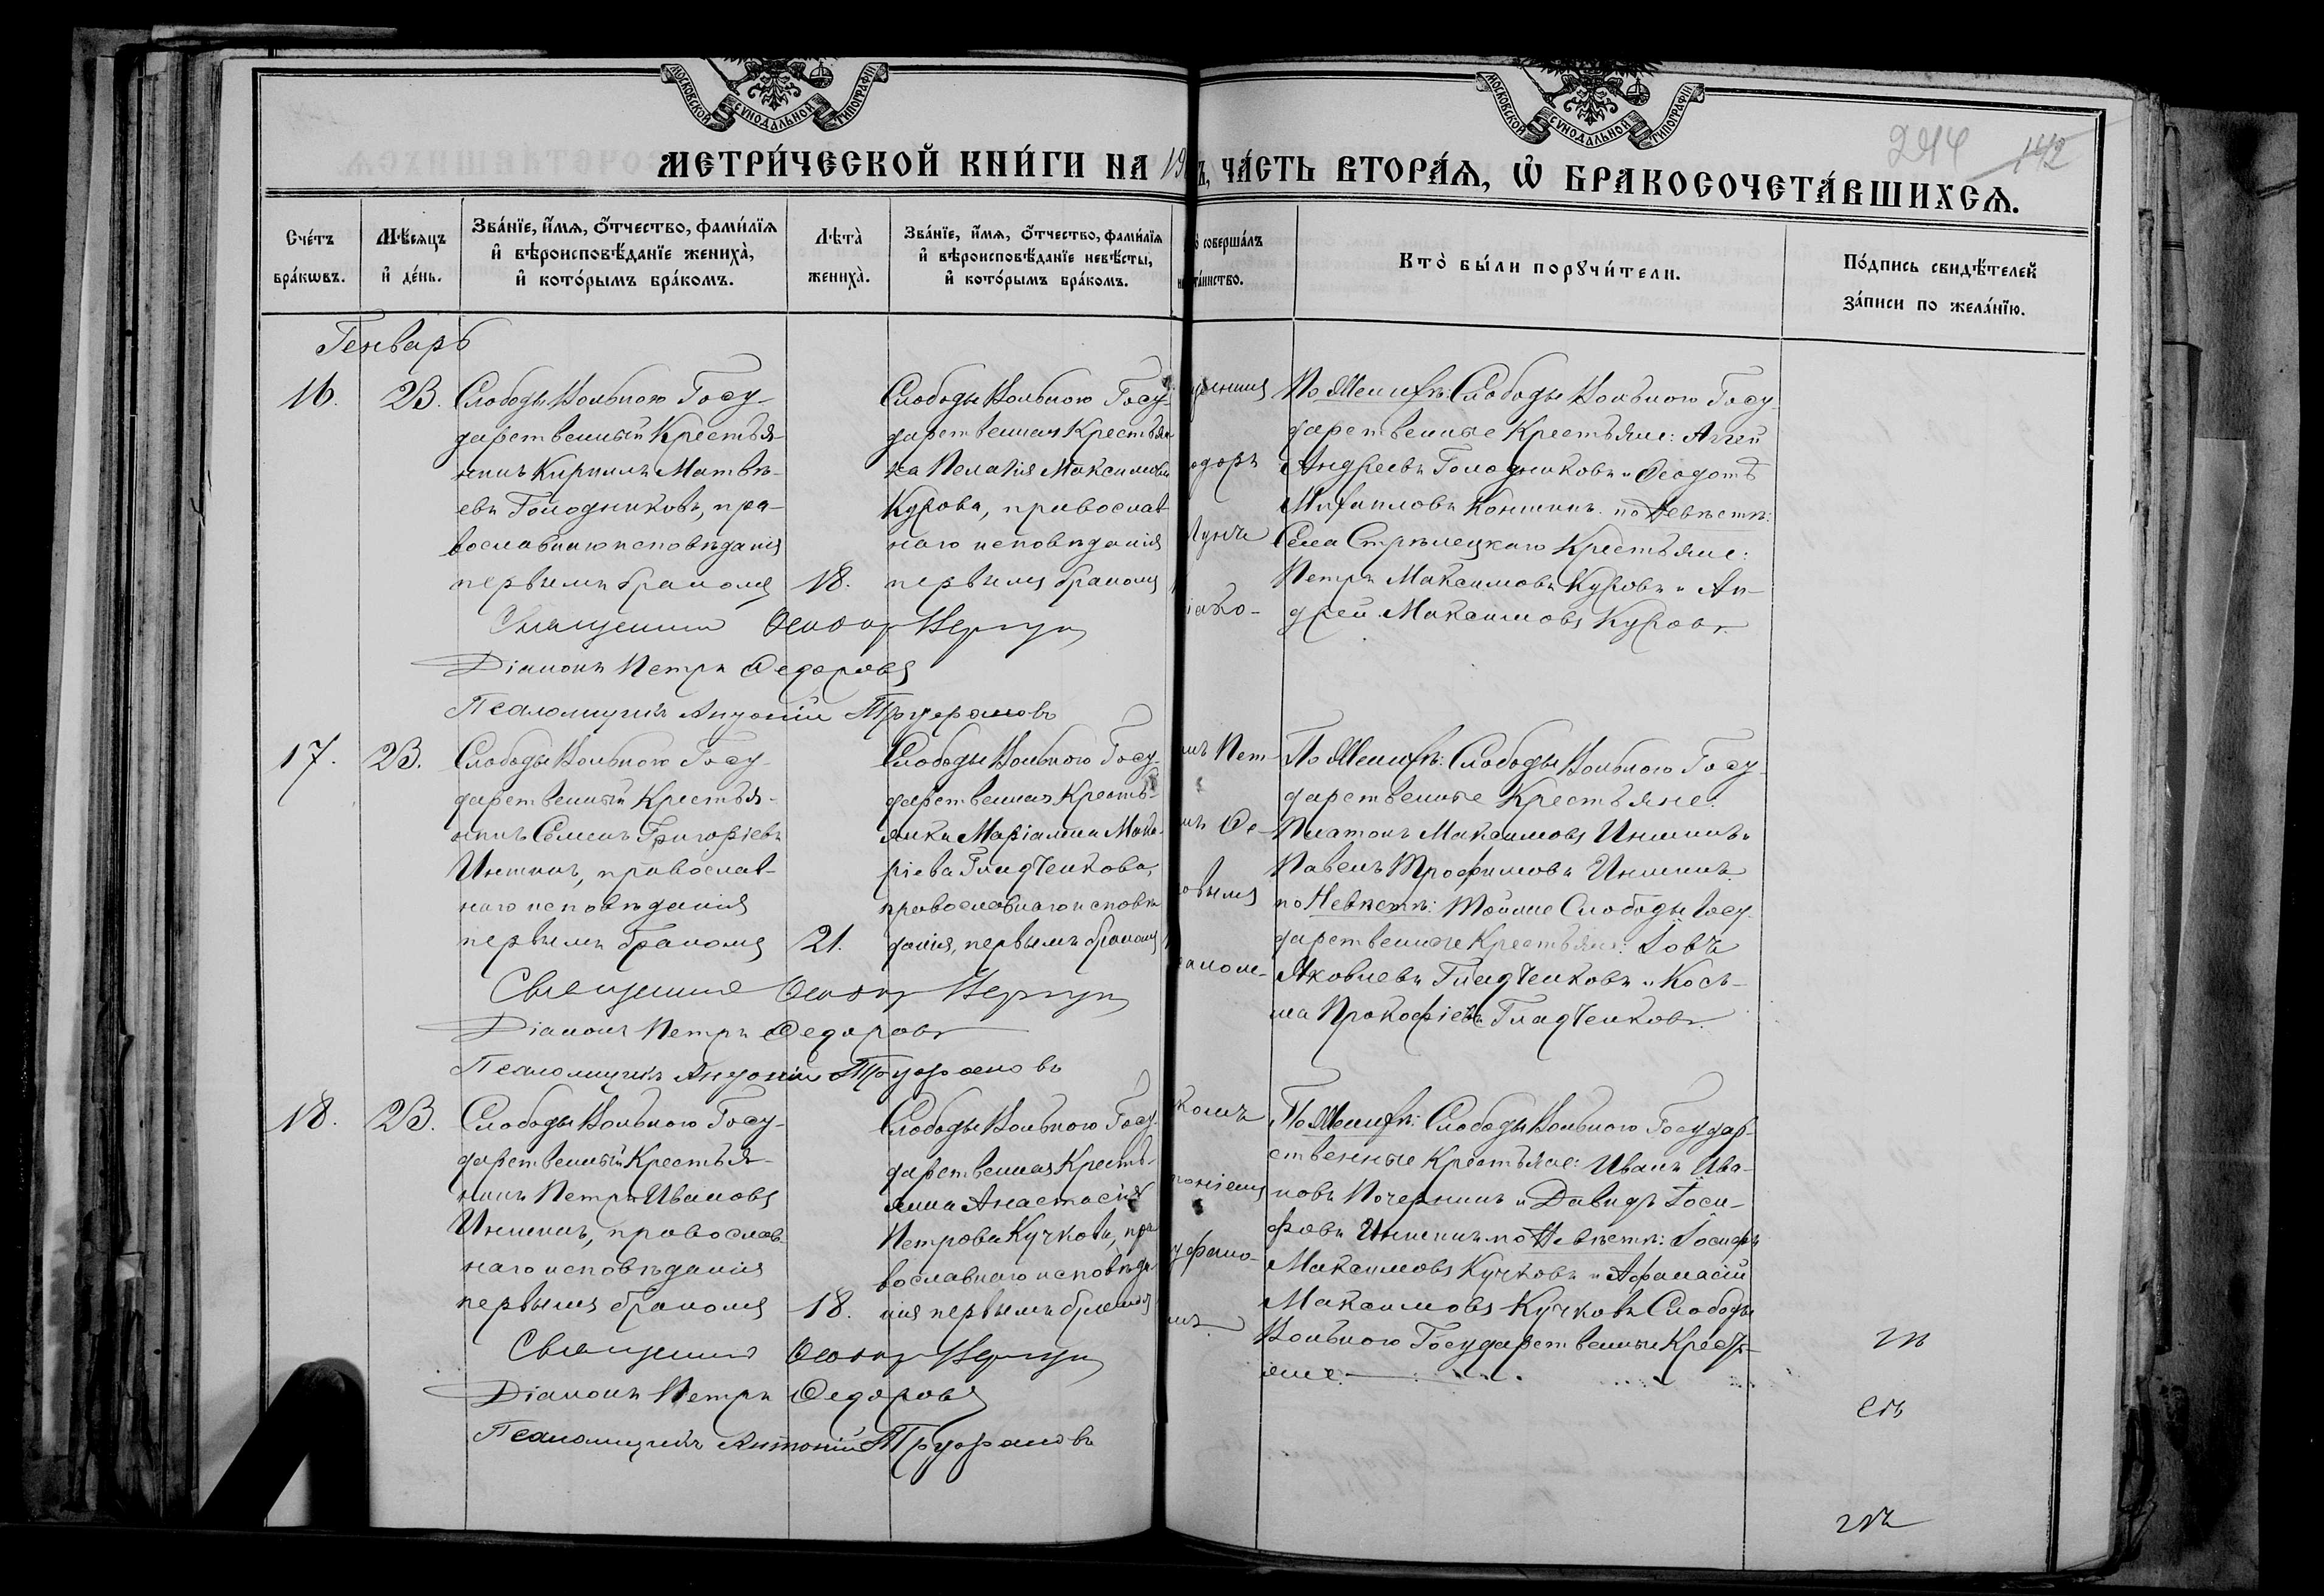 МОСКОВСКОЙ СѴНОДАЛЬНОЙ ТИПОГРАФІИ
МОСКОВСКОЙ СѴНОДАЛЬНОЙ ТИПОГРАФІИ
244 142
МЕТРИ́ЧЕСКОЙ КНИ́ГИ НА 19
Ъ, ЧА́СТЬ ВТОРА́Я, Ѿ БРАКОСОЧЕТА́ВШИХСЯ.
Сче́тъ бра́кѡвъ.
Мѣ́сяцъ и҆ де́нь.
Зва́нїе, и҆́мя, ѻ҆́тчество, фами́лїя
и҆ вѣроисповѣ́данїе женихà,
и҆ кото́рымъ бра́комъ.
Лѣтà женихà.
Зва́нїе, и҆́мя, ѻ҆́тчество, фами́лїя
и҆ вѣроисповѣ́данїе невѣ́сты,
и҆ кото́рымъ бра́комъ.
соверша́лъ
та́инство.
Кто̀ бы́ли порꙋчи́тели.
По́дпись свидѣ́телей
за́писи по жела́нїю.
Генварь
16. 23.
Слободы Вольного Госу-
дарственный Крестья-
нинъ Кириллъ Матвѣ-
евъ Голодниковъ, пра-
вославнаго исповѣданія
первымъ бракомъ
18.
Слободы Вольного Госу-
дарственная Крестьян-
ка Пелагія Максимова
Курова, православ
наго исповѣданія
первымъ бракомъ
По Женихѣ: Слободы Вольного Госу-
дарственные Крестьяне: Аггей
Андреевъ Голодниковъ и Ѳеодотъ
Михаиловъ Коншинъ. по Невѣстѣ:
Села Стрѣлецкаго Крестьяне:
Петръ Максимовъ Куровъ и Ан-
дрей Максимовъ Куровъ.
Священникъ Ѳеодоръ
Діаконъ Петръ Ѳедоровъ
Псаломщикъ Антоній Труфановъ
17. 23.
Слободы Вольного Госу-
дарственный Крестья-
нинъ Семенъ Григорьевъ
Иншинъ, православ-
наго исповѣданія
первымъ бракомъ
21.
Слободы Вольного Госу-
дарственная Кресть-
янка Маріамна Мака-
ріева Гладченкова,
православнаго исповѣ
данія, первымъ бракомъ
По Женихѣ: Слободы Вольного Госу-
дарственные Крестьяне:
Платонъ Максимовъ Иншинъ и
Павелъ Трофимовъ Иншинъ.
по Невѣстѣ: Тойже Слободы Госу-
дарственные Крестьяне: Іовъ
Яковлевъ Гладченковъ и Кось-
ма Прокофіевъ Гладченковъ.
Священникъ Ѳеодоръ
Діаконъ Петръ Ѳедоровъ
Псаломщикъ Антоній Труфановъ
18. 23.
Слободы Вольного Госу-
дарственный Крестья-
нинъ Петръ Ивановъ
Иншинъ, православ-
наго исповѣданія
первымъ бракомъ
18.
Слободы Вольного Госу-
дарственная Кресть-
янка Анастасія
Петрова Кучкова, пра
вославнаго исповѣда-
нія первымъ бракомъ
По Женихѣ: Слободы Вольного Государ-
ственные Крестьяне: Иванъ Ива-
новъ Почернинъ и Давидъ Іоси-
фовъ Иншинъ по Невѣстѣ: Іосифъ
Максимовъ Кучковъ и Афанасій
Максимовъ Кучковъ Слободы
Вольного Государственные Кресть-
яне.
Священникъ Ѳеодоръ
Діаконъ Петръ Ѳедоровъ
Псаломщикъ Антоній Труфановъ